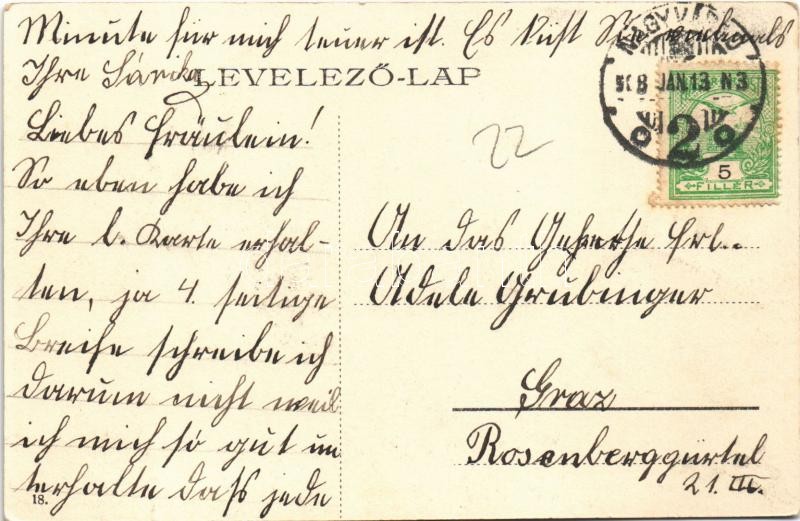 Minute für mich teuer ist. Es küsst Sie vielmals
Ihre Sárika
LEVELEZŐ-LAP
NAGYVÁRAD
908 JAN.13 N3
2
5
FILLER
22
Liebes Fräulein!
So eben habe ich
Ihre l. Karte erhal-
ten, ja 4. seitige
Breife schreibe ich
darum nicht weil
ich mich so gut un
terhalte dass jede
18.
An das Geherthe Frl..
Adele Grubinger
Graz
Rosenberggürtel
21. III.